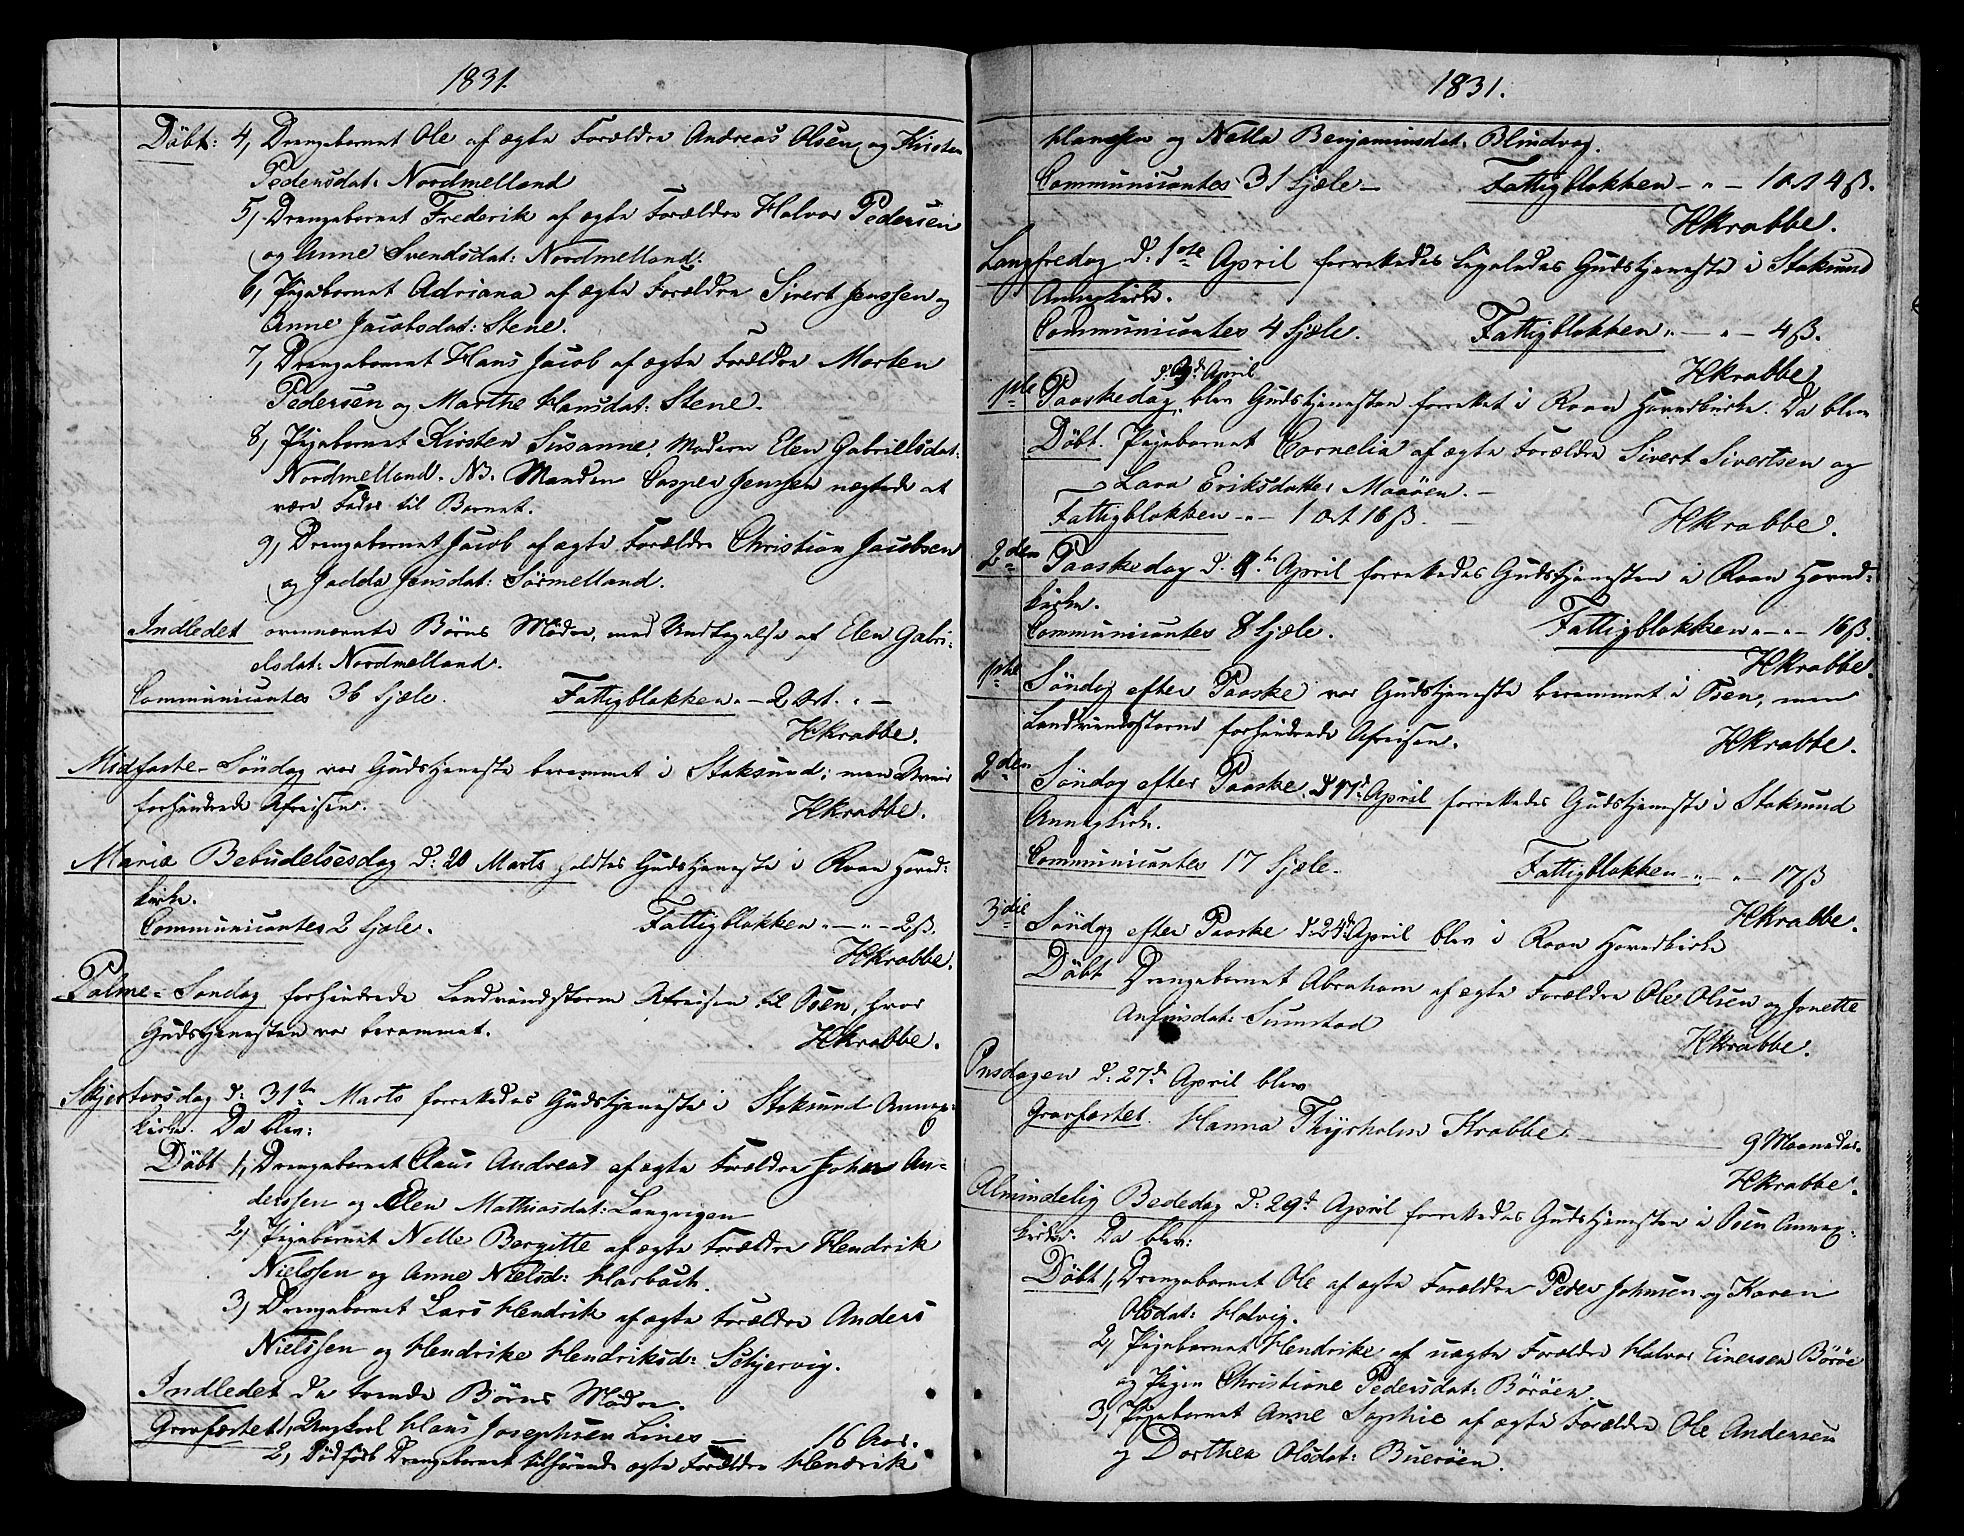 1831.
Döbt: 4, Drengebarnet Ole af ægte Forældre Andreas Olsen og Kirsten
Pedersdat: Nordmelland
5, Drengebarnet Frederik af ægte Forældre Halvor Pedersen
og Anne Svendsdat: Nordmelland.
6, Pigebarnet Adriana af ægte Forældre Sivert Jenssen og
Anne Jacobsdat: Stene.
7, Drengebarnet Hans Jacob af ægte Forældre Morten
Pedersen og Marthe Hansdat: Stene.
8, Pigebarnet Kirsten Susanne, Moderen Elen Gabrielsdat:
Nordmelland. NB. Manden Casper Jenssen nægtede at
være Fader til Barnet.
9, Drengebarnet Jacob af ægte Forældre Christian Jacobsen
og Jadda Jensdat: Sörmelland.
Indledet ovennævnte Börns Mödre, med Undtagelse af Elen Gabri-
elsdat: Nordmelland.
Communicantes 36 Sjæle. Fattigblokken " - 2 Ort. " -
HKrabbe.
Midfaste-Söndag var Gudstjeneste berammet i Stoksund; men Uveir
forhindrede Afreisen.
HKrabbe.
Mariæ Bebudelsesdag d: 20 Marts holdtes Gudstjeneste i Roan Hoved-
kirke.
Communicantes 2 Sjæle. Fattigblokken " - " - 2ß.
HKrabbe.
Palme-Söndag forhindrede Landvindstorm Afreisen til Osen, hvor
Gudstjenesten var berammet.
HKrabbe.
Skjertorsdag d: 31te Marts forrettedes Gudstjeneste i Stoksund Annex-
kirke. Da blev:
Döbt 1, Drengebarnet Claus Andreas af ægte Forældre Johan An-
derssen og Elen Mathiasdat: Langvigen
2, Pigebarnet Nelle Bergitte af ægte Forældre Hendrik
Nielssen og Anne Nielsd: Harbach.
3, Drengebarnet Lars Hendrik af ægte Forældre Anders
Nielssen og Hendrike Hendriksd: Schjervig.
Indledet de trende Börns Mödre.
Gravfæstet 1, Ungkarl Hans Josephsen Lines — 16 Aar.
2, Dödfödt Drengebarnet tilhörende ægte Forældre Hendrik
1831.
Hansen og Nella Benjaminsdat: Blindvog.
Communicantes 31 Sjæle — Fattigblokken - " - 1 Ort 4ß.
HKrabbe.
Langfredag d: 1ste April forrettedes ligeledes Gudstjeneste i Stoksund
Annexkirke.
Communicantes 4 Sjæle. Fattigblokken " - " - 4ß.
HKrabbe
d: 3d April
1ste Paaskedag, blev Gudstjenesten forrettet i Roan Hovedkirke. Da blev
Döbt. Pigebarnet Cornelia af ægte Forældre Sivert Sivertsen og
Lava Eriksdatter Maaöen. -
Fattigblokken - " - 1 Ort 16ß. -
HKrabbe.
2den Paaskedag d: 4de April forrettedes Gudstjenesten i Roan Hoved-
kirke.
Communicantes 8 Sjæle. Fattigblokken " - " - 16ß.
HKrabbe.
1ste Söndag efter Paaske var Gudstjeneste berammet i Osen, men
Landvindsstorm forhindrede Afreisen.
HKrabbe.
2den Söndag efter Paaske. d 17d April forrettedes Gudstjeneste i Stoksund
Annexkirke.
Communicantes 17 Sjæle. Fattigblokken - " - " - 17ß
HKrabbe.
3die Söndag efter Paaske d: 24de April blev i Roan Hovedkirke
Döbt Drengebarnet Abraham af ægte Forældre Ole Olsen og Jonette
Anfinsdat: Sumstad
HKrabbe.
Onsdagen d: 27d. April blev
Gravfæstet. Hanna Thyrholm Krabbe — 9 Maaneder.
HKrabbe.
Almindelig Bededag d: 29d. April forrettedes Gudstjenesten i Osen Annex-
kirke. Da blev:
Döbt 1, Drengebarnet Ole af ægte Forældre Peder Johnsen og Karen
Olsdat: Halvig.
2, Pigebarnet Hendrike af uægte Forældre Halvor Einersen Böröe
og Pigen Christiane Pedersdat: Böröen.
3, Pigebarnet Anne Sophie af ægte Forældre Ole Andersen
og Dorthea Olsdat: Bueröen.